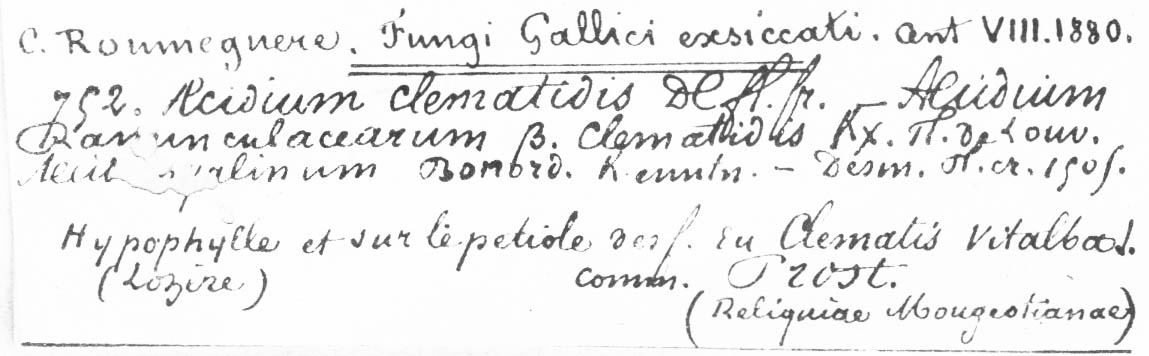 C. Roumeguere. Fungi Gallici exsiccati. Cent VIII. 1880.
752. Æcidium clematidis DC fl. fr. — Æcidium
Ranunculacearum β. Clematidis Kx. fl. de Louv.
Bonord. — Desm. Pl. cr. 1505.
Hypophylle et sur le petiole des f. du Clematis Vitalba L.
(Lozère) comm. Prost.
(Reliquiae Mougeotianae)